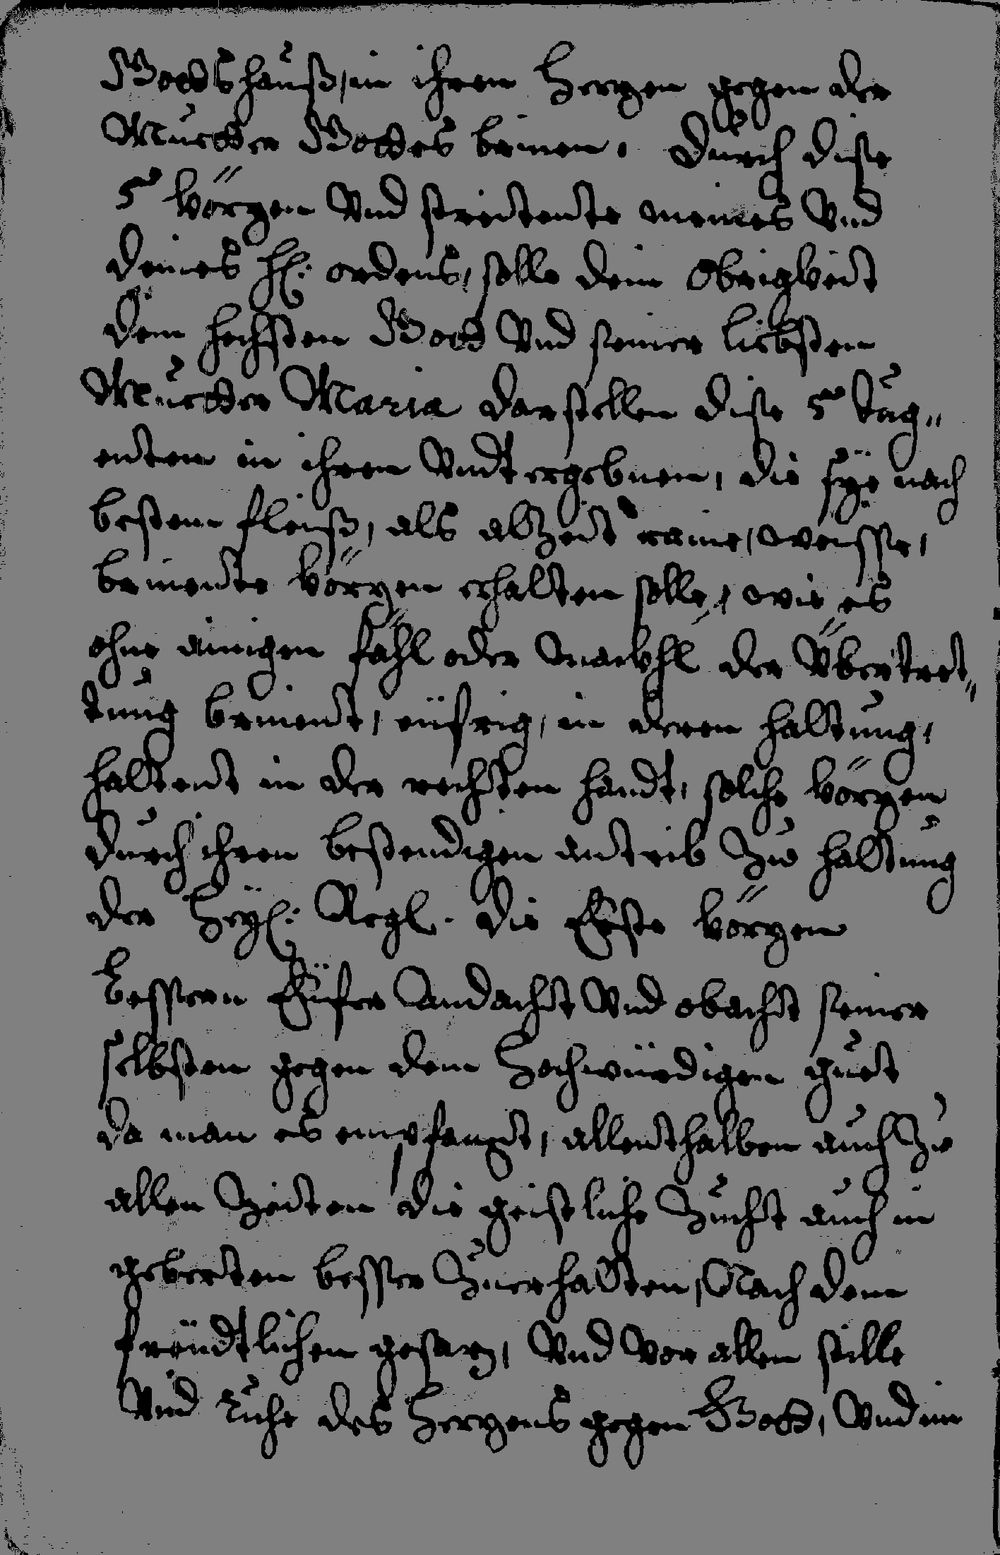 Gottshauß, in ihren Herzen gegen der
Muetter Gottes brinen. Durch dise
5 körzen Vnd streitente meines Vnd
deines hl: ordens, solle dein Obrigkeit
dem hechsten Gott Vnd seiner liebsten
Muetter Maria darstellen dise 5 tug„
enten in ihren Vndtergebnen, die sÿe nach
bestem fleiß, als alzeit raine, weisse,
brinente körzen erhalten solle, wie es
ohne ainigen fähl oder Mackhl der Vbertret„
tung brinent, eüfrig, in deren haltung,
haltent in der rechten handt, solche körzen
durch ihren bestendigen antrib Zue haltung
der Heÿl: Regl. die Erste körzen
bessern Eÿfer Andacht Vnd obacht seiner
selbsten gegen dem Hochwürdigen guet
da man es empfangt, allenthalben auch Zue
allen Zeiten die geistliche Zucht auch in
geberten besser Zuerhalten, Nach dem
fründtlichen gesaz, Vnd vor allem stille
Vnd ruhe des Herzens gegen Gott, Vnd im